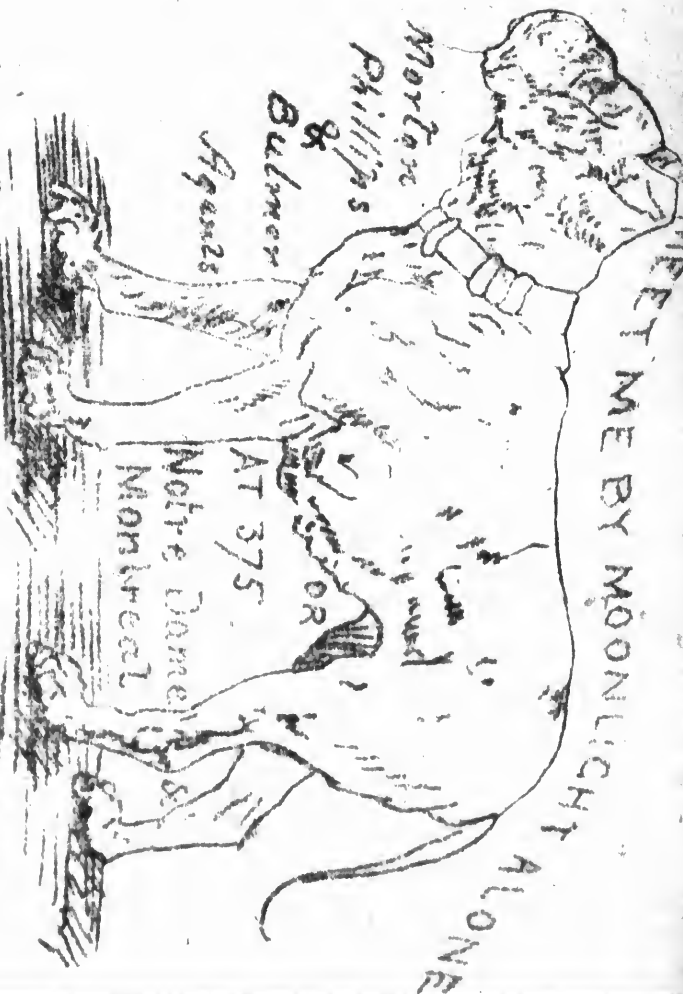 MEET ME BY MOONLIGHT ALONE
OR
AT 375
Notre Dame
Montreal
Morton
Phillips
&
Bulmer
Agents